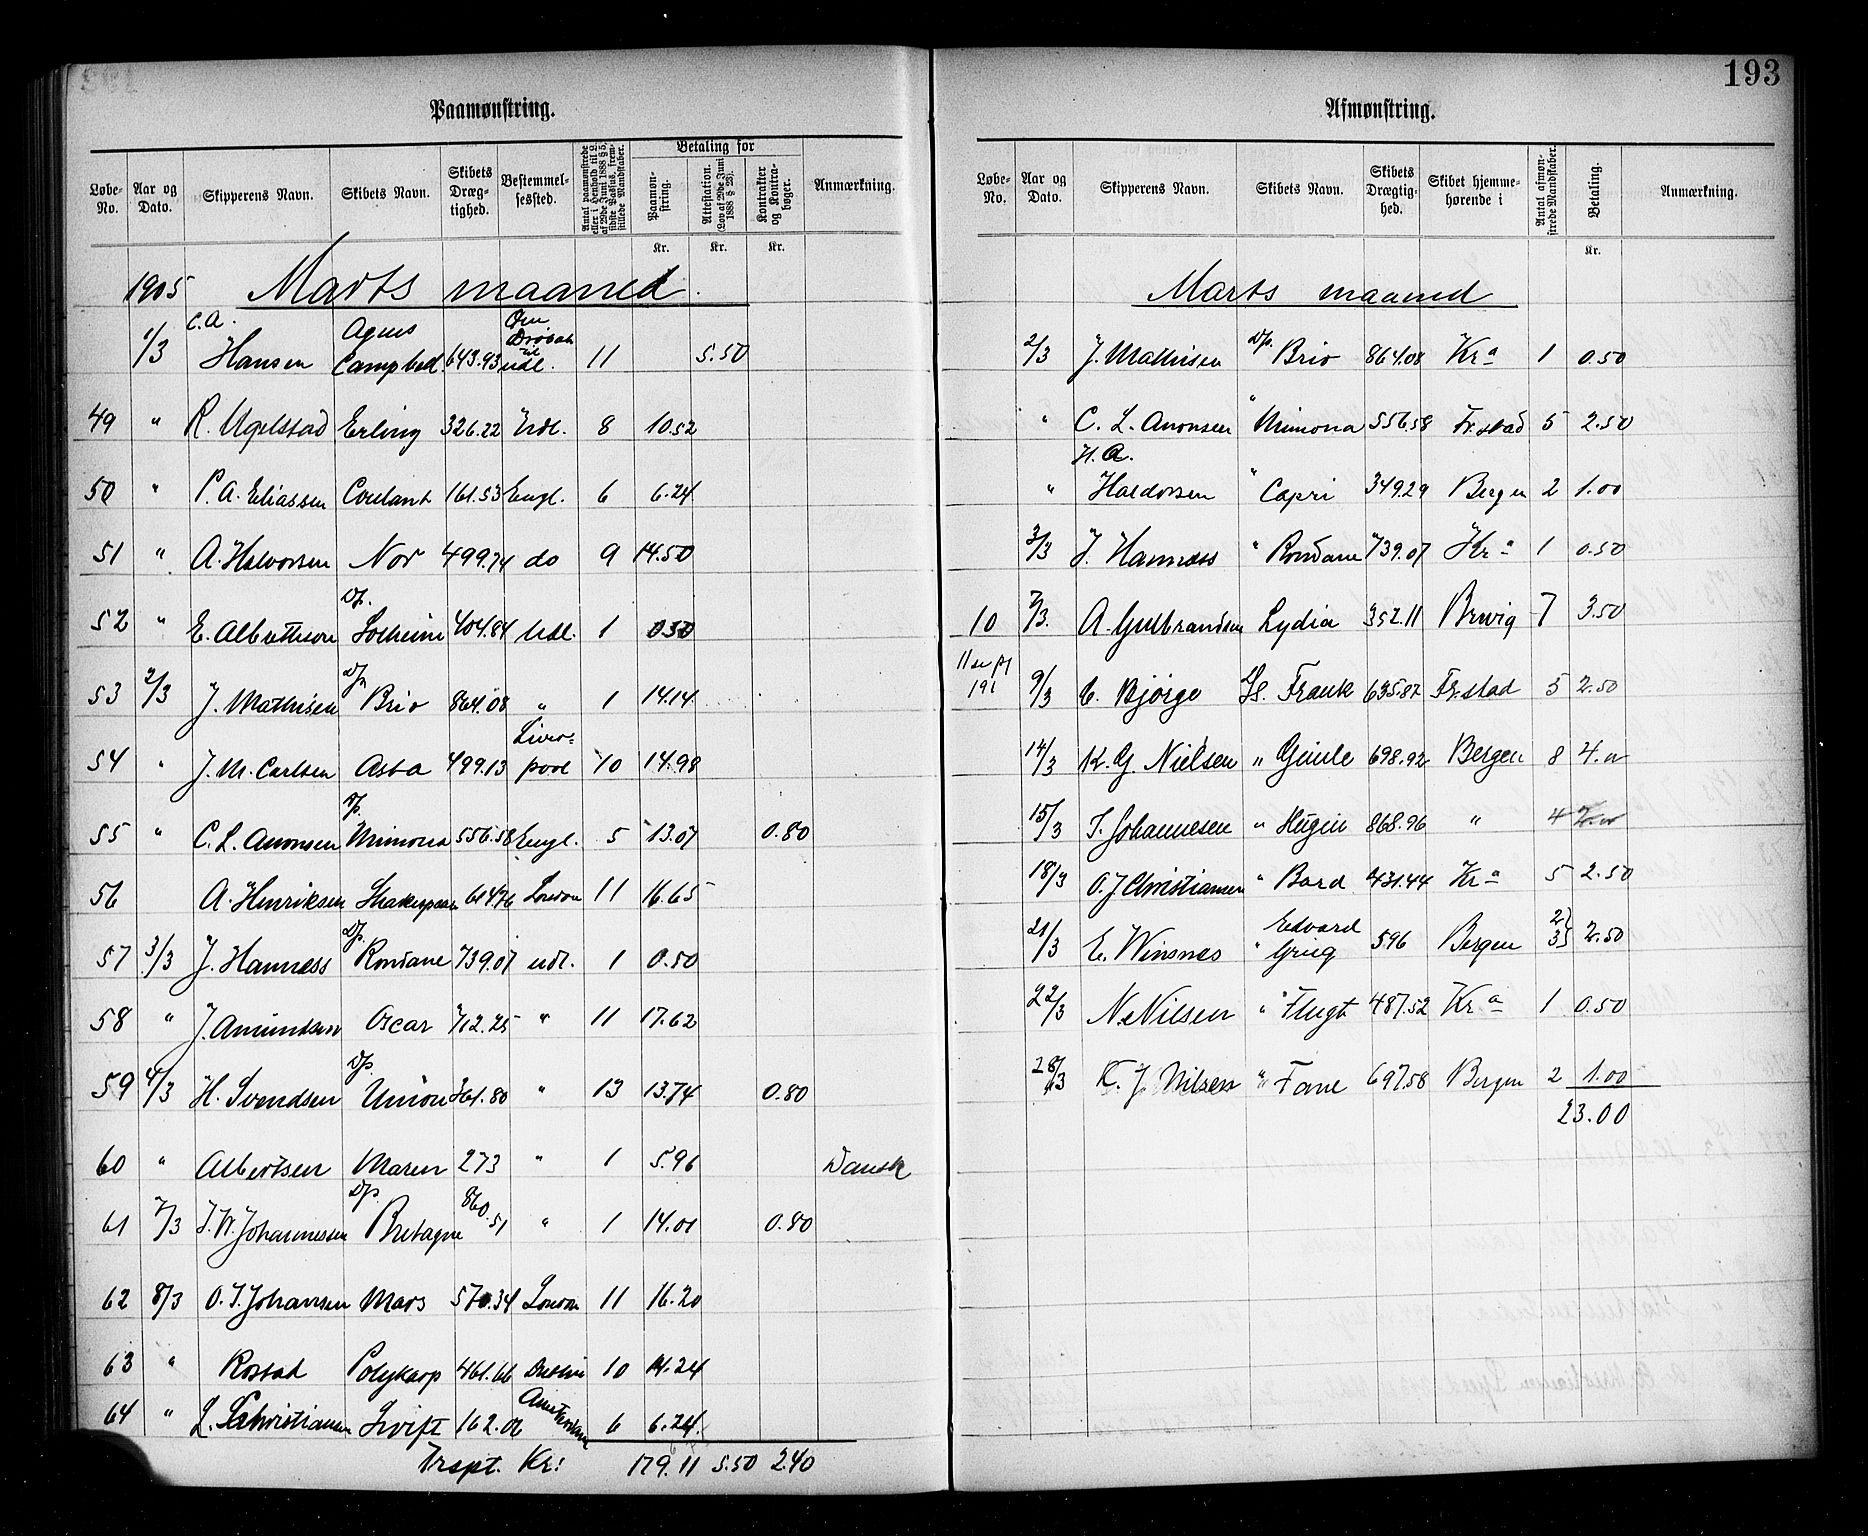 193
Paamønstring.
Løbe-No. | Aar og Dato. | Skipperens Navn. | Skibets Navn. | Skibets Dræg-tighed. | Bestemmel-sessted. | Antal paamønstrede eller i Henhold til L. af 29de Juni 1888 § 5, sidste Passus, frem-stillede Mandskaber. | Betaling for | Paamøn-string. | Attestation. (Lov af 29de Juni 1888 § 23). | Kontrakter og Kontra-bøger. | Anmærkning.
Kr. | Kr. | Kr.
1905 Marts maaned.
1/3 | C.A. Hansen | Agnes Campbel | 643.93 | Om Drøbak til udl. | 11 | 5.50
49 | " | R. Ugelstad | Erling | 326.22 | Udl. | 8 | 10.52
50 | " | P. A. Eliassen | Coulant | 161.53 | Engl. | 6 | 6.24
51 | " | A. Halvorsen | Nor | 499.74 | do | 9 | 14.50
52 | " | E. Albrethson | Dp. Solheim | 404.84 | Udl. | 1 | 0.50
53 | 2/3 | J. Mathisen | Dp. Brio | 864.08 | " | 1 | 14.14
54 | " | J. M. Carlsen | Asta | 499.13 | Liver=pool | 10 | 14.98
55 | " | C. L. Aronsen | Dp. Mimona | 556.58 | Engl. | 5 | 13.07 | 0.80
56 | A. Henriksen | Shakespeare | 614.76 | London | 11 | 16.65
57 | 3/3 | J. Hannæss | Dp. Rondane | 739.07 | udl. | 1 | 0.50
58 | " | J. Amundsen | Oscar | 712.25 | " | 11 | 17.62
59 | 4/3 | H. Svendsen | Dp. Union | 361.80 | " | 13 | 13.74 | 0.80
60 | " | Albertsen | Maren | 273 | " | 1 | 5.96 | Dansk
61 | 7/3 | J. W. Johannessen | Dp. Bretagne | 860.51 | " | 1 | 14.01 | 0.80
62 | 8/3 | O. J. Johansen | Mars | 570.34 | London | 11 | 16.20
63 | " | Rostad | Polykarp | 461.66 | Dublin | 10 | 14.24
64 | " | L. Christiansen | Svift | 162.06 | Amsterdam | 6 | 6.24
Trspt. Kr: 179.11 5.50 2.40
Afmønstring.
Løbe-No. | Aar og Dato. | Skipperens Navn. | Skibets Navn. | Skibets Drægtig-hed. | Skibet hjemme-hørende i | Antal afmøn-strede Mandskaber. | Betaling. | Anmærkning.
Kr.
Marts maaned
2/3 | J. Mathisen | Dp. Brio | 864.08 | Kr a | 1 | 0.50
" | C. L. Aronsen | " Mimona | 556.58 | Fr.stad | 5 | 2.50
" | H. A. Haldorsen | " Capri | 349.29 | Bergen | 2 | 1.00
3/3 | J. Hannæss | " Rondane | 739.07 | Kr a | 1 | 0.50
10 | 7/3. | A. Gulbrandsen | Lydia | 352.11 | Brevig | 7 | 3.50
11 se pg 191 | 9/3 | C. Bjørge | Frank | 635.87 | Fr.stad | 5 | 2.50
14/3 | K. G. Nielsen | " Gimle | 698.92 | Bergen | 8 | 4.00
15/3 | T. Johannesen | " Hugin | 868.96 | " | 4
18/3 | O. J. Christiansen | " Bard | 431.44 | Kr a | 5 | 2.50
21/3 | E. Winsnes | " Edvard Grieg | 596 | Bergen | 2 3 | 2.50
22/3 | N. Nilsen | " Flugt | 487.52 | Kr a | 1 | 0.50
28/3 | K. J. Nilsen | " Fane | 697.58 | Bergen | 2 | 1.00
23.00